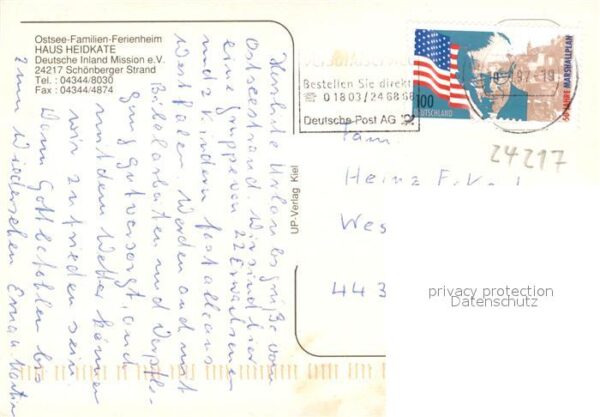 Ostsee-Familien-Ferienheim
HAUS HEIDKATE
Deutsche Inland Mission e.V.
24217 Schönberger Strand
Tel. : 04344/8030
Fax : 04344/4874
Herzliche Urlaubsgrüße vom
Ostseestrand. Wir sind hier
eine Gruppe von 22 Erwachsenen
und 2 Kindern fast alle aus
Westfalen. Werden auch mit
Bibelarbeiten und Verpfle-
gung gut versorgt, auch
mit dem Wetter können
wir zufrieden sein.
Dem Gott befohlen bis
zum Wiedersehen Erna
UP-Verlag Kiel
Bestellen Sie direkt
0 18 03/24 68 68
Deutsche Post AG
100
DEUTSCHLAND
50 JAHRE MARSHALLPLAN
97-19
24217
Fam.
Heinz
Wes
443
privacy protection
Datenschutz